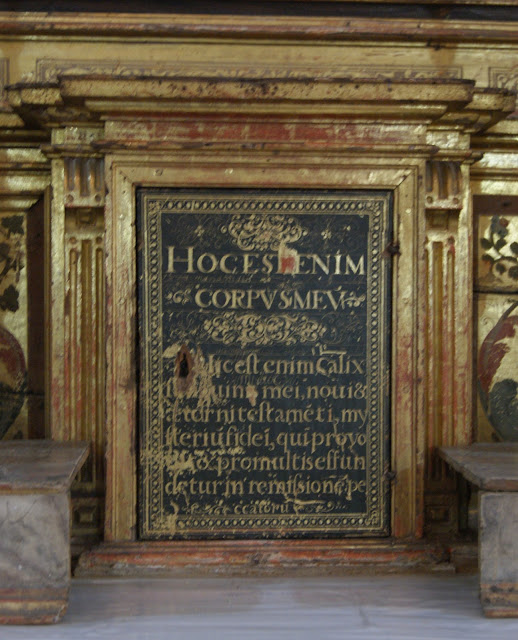 HOC EST ENIM
CORPVS MEV
Hic est enim Calix
mei, noui &
æterni testaméti, my
steriu fidei, qui pro vo
& pro multis effun
detur in remissioné pe
ccatoru